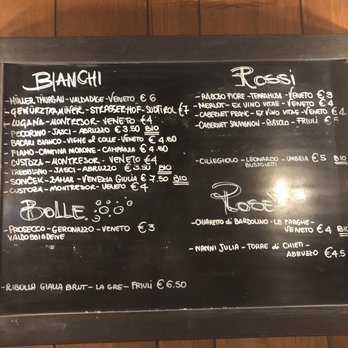 BIANCHI
- MÜLLER THURGAU - VALDADIGE - VENETO € 6
- GEWÜRZTRAMINER - STRASSERHOF - SUDTIROL €7
- LUGANA - MONTRESOR - VENETO € 4
- PECORINO - JASCI - ABRUZZO € 3.50 BIO
- BACAI BIANCO - VIGNE AL COLLE - VENETO € 4.80
- FIANO - CANTINA MORONE - CAMPANIA € 4.80
- CUSTOZA - MONTRESOR - VENETO € 4
- TREBBIANO - JASCI - ABRUZZO € 3.50 BIO
- SONČEK - ZAHAR - VENEZIA GIULIA € 7.50 BIO
- CUSTOZA - MONTRESOR - VENETO € 4
BOLLE
- PROSECCO - GERONAZZO - VENETO € 3
VALDOBBIADENE
- RIBOLLA GIALLA BRUT - LA GRE - FRIULI € 6.50
ROSSI
- VENETO € 3
- MERLOT - EX VINO VITAE - VENETO € 4
- CABERNET FRANC - EX VINO VITAE - VENETO € 4
- CABERNET SAUVIGNON - - FRIULI € 5
- CILIEGIOLO - LEONARDO - UMBRIA € 5 BIO
BUSSOLETTI
ROSE
- CHIARETTO DI BARDOLINO - LE FARGHE -
VENETO € 4 BIO
- NANNI JULIA - TORRE DI CHIETI -
ABRUZZO € 4.5